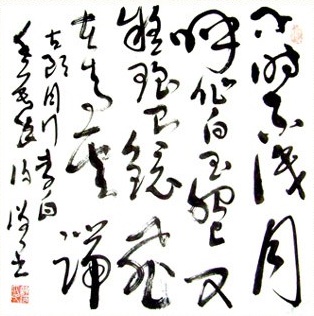 小时不识月
呼作白玉盘又
疑瑶台镜飞
在青云端
古朗月行李白